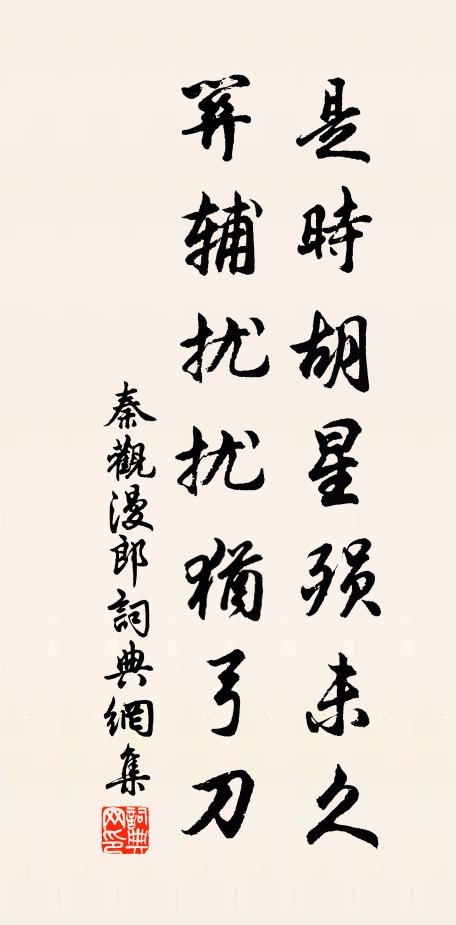 是時胡星殒未久
關辅扰扰猶弓刀
秦觀漫郎詞典網集
詞典網印